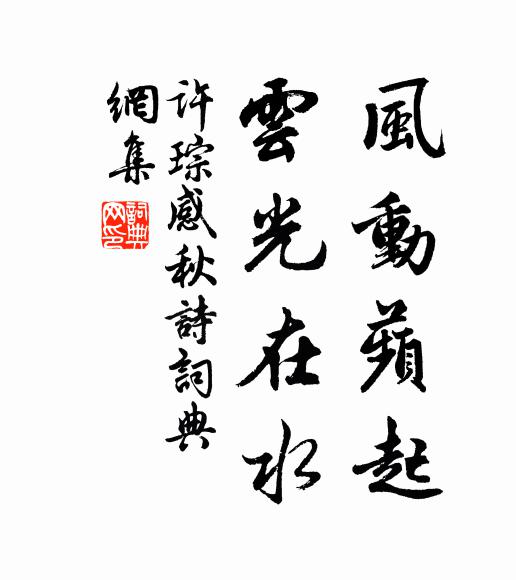 風動蘋起
雲光在水
許琮感秋詩詞典
網集
詞典
网印